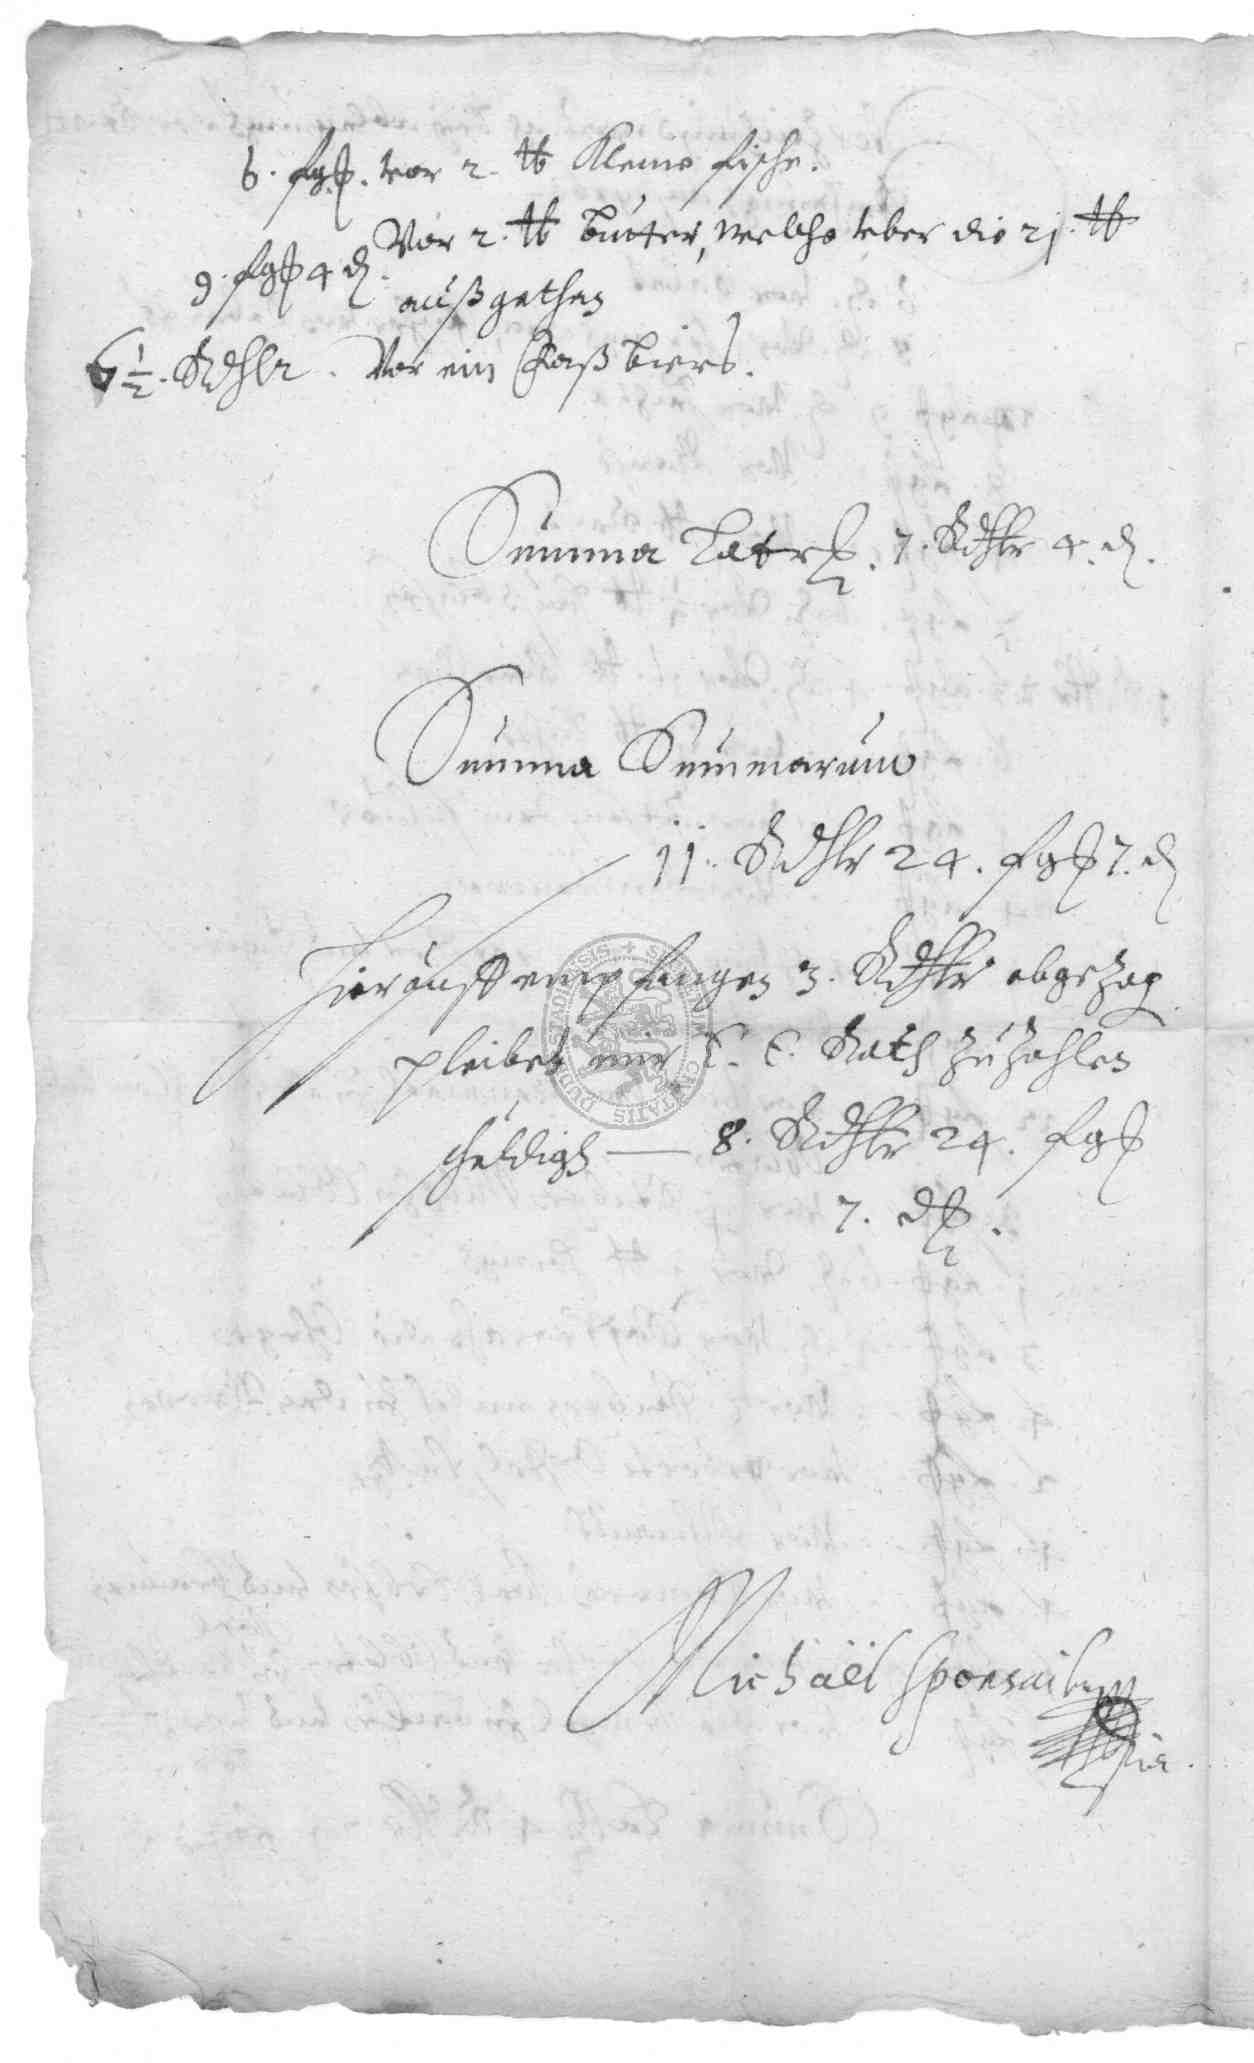 6. fgl. vor 2. ℔ Kleine fische.
9. fgl 4 ₰. Vor 2. ℔ Butter, welche vber die 21. ℔
außgethan
6 1/2. Rthlr. Vor ein Faß biers.
Summa Lateris. 7. Rthlr 4. ₰.
Summa Summarum
11. Rthlr 24. fgl 7. ₰
Hierauff empfangen 3. Rthlr abgezog
pleibet mir E. E. Rath zu zahlen
schuldigh — 8. Rthlr 24. fgl
7. ₰.
Michaël
SIGILLUM CIVITATIS DUDERSTADIENSIS